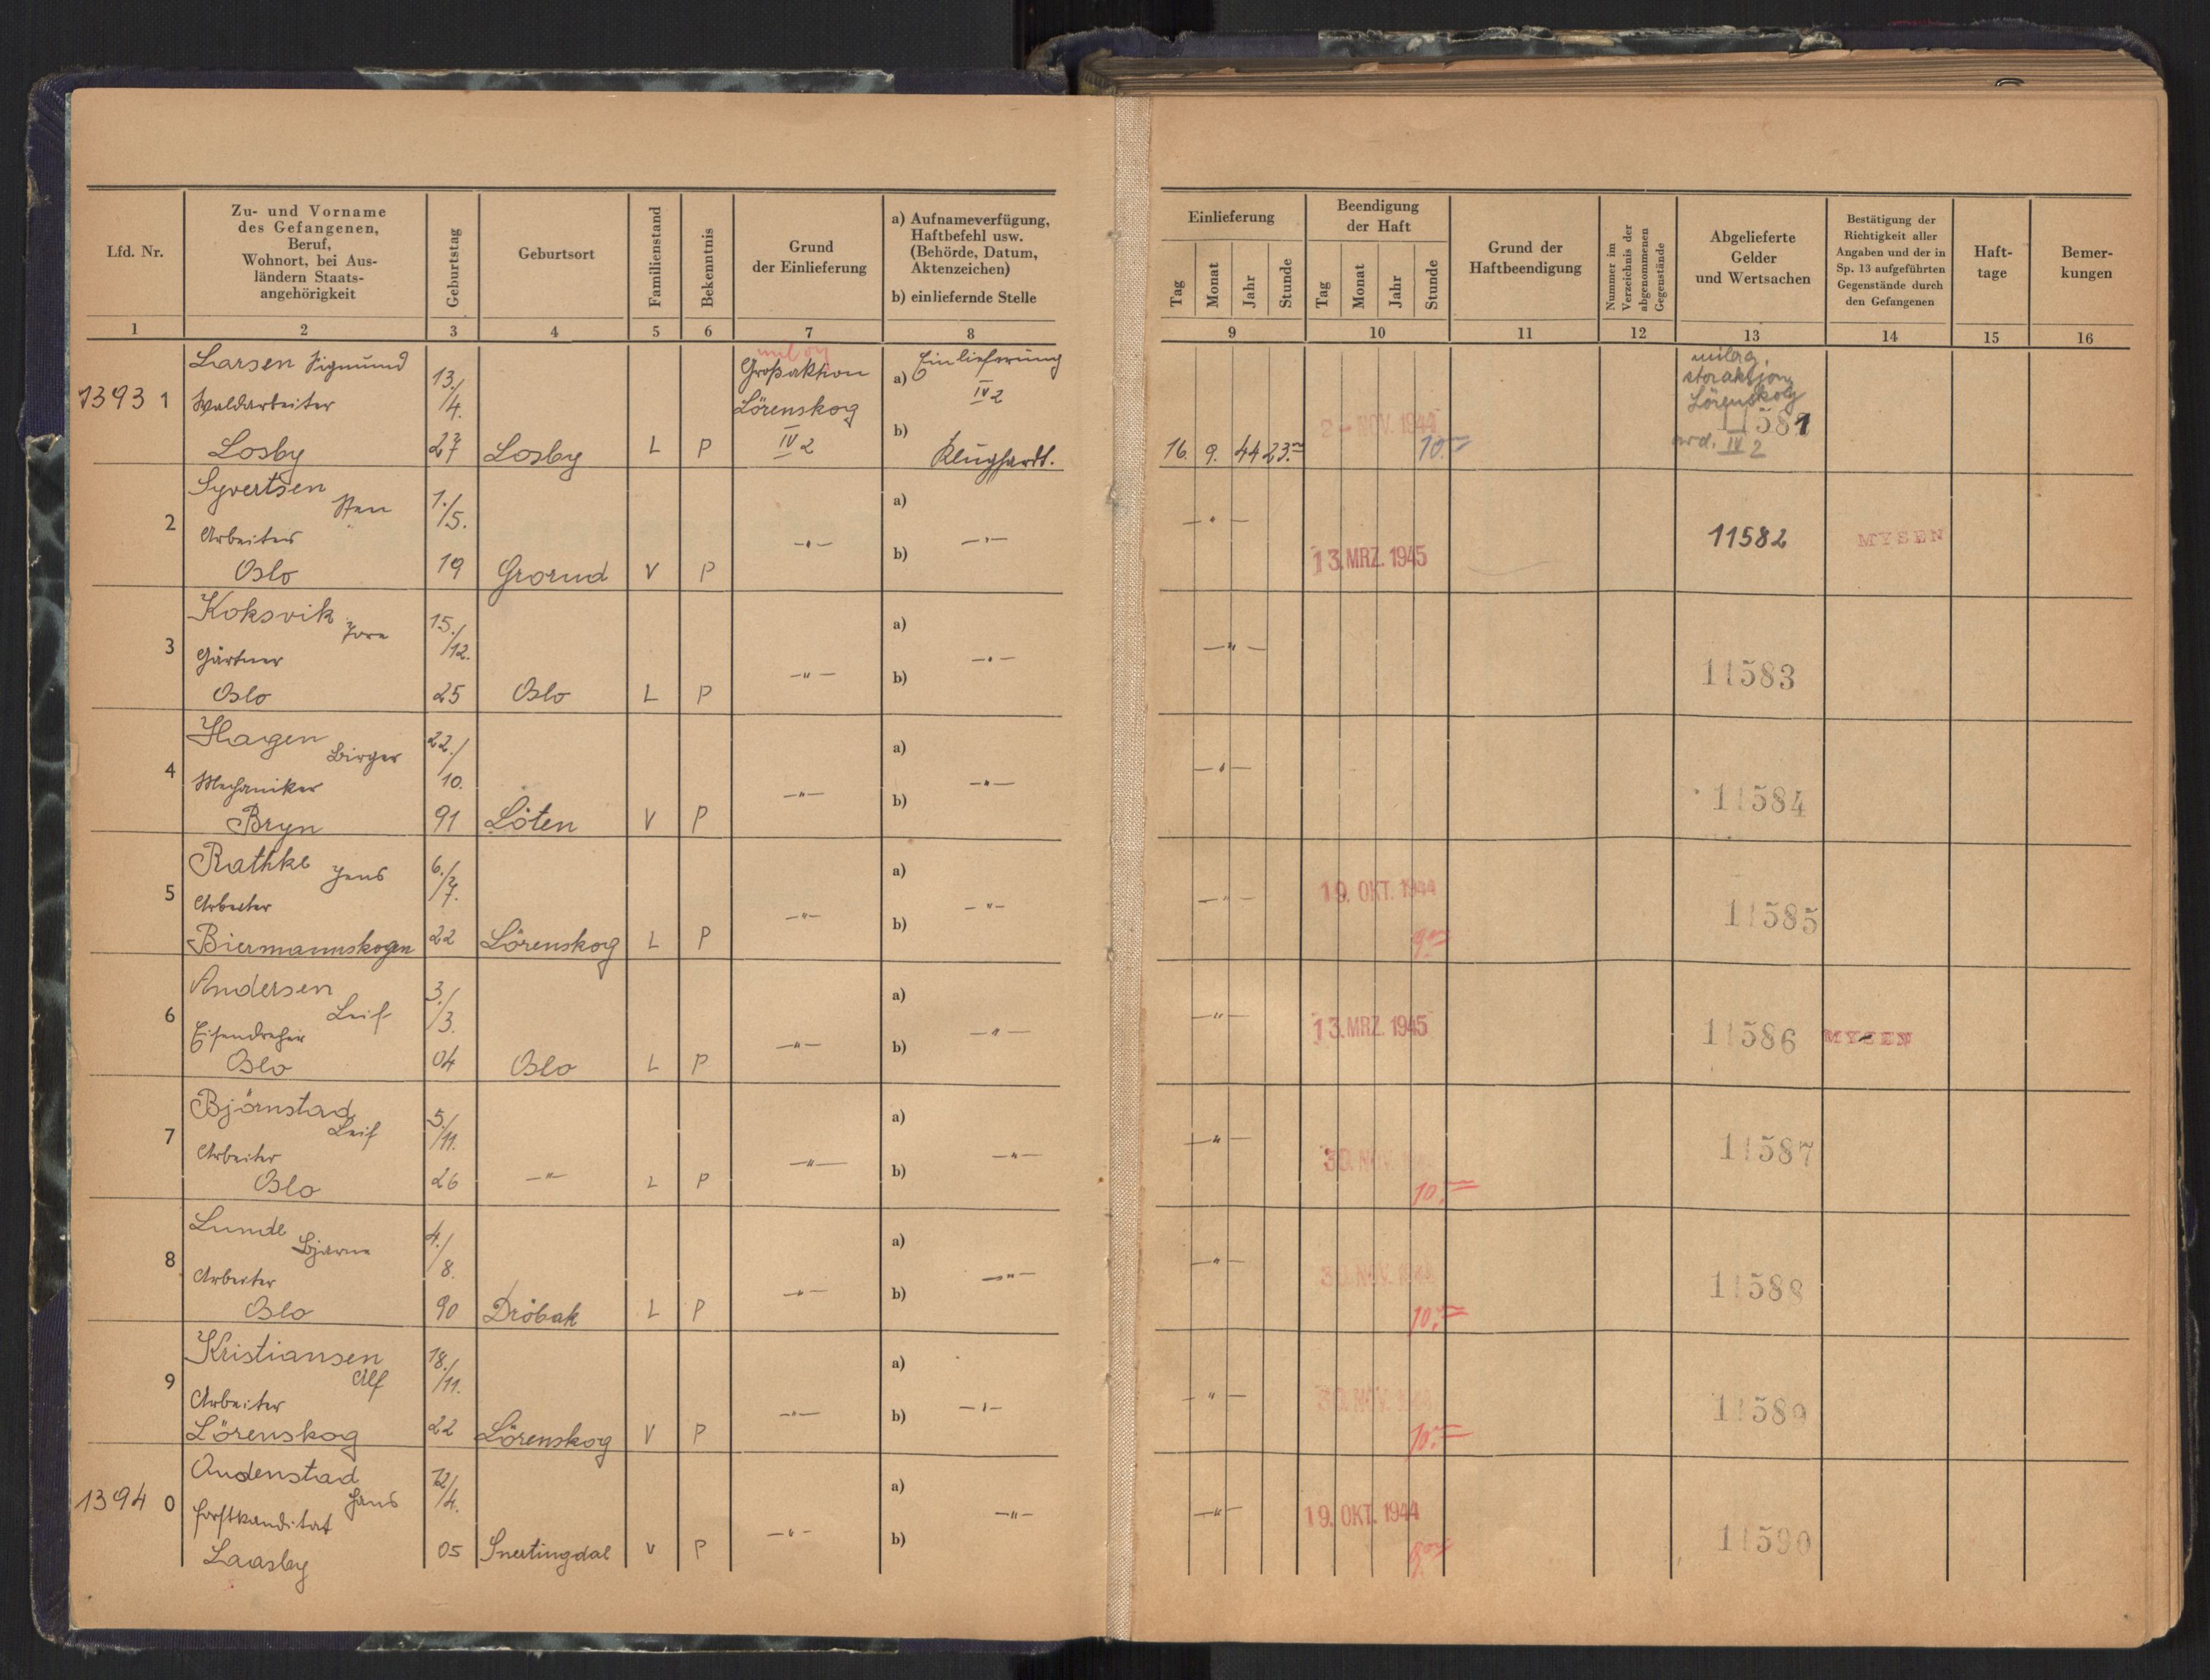 Lfd. Nr.
Zu- und Vorname
des Gefangenen,
Beruf,
Wohnort, bei Aus-
ländern Staats-
angehörigkeit
Geburtstag
Geburtsort
Familienstand
Bekenntnis
Grund
der Einlieferung
a) Aufnameverfügung,
Haftbefehl usw.
(Behörde, Datum,
Aktenzeichen)
b) einliefernde Stelle
1 2 3 4 5 6 7 8
Einlieferung
Tag Monat Jahr Stunde
Beendigung
der Haft
Tag Monat Jahr Stunde
Grund der
Haftbeendigung
Nummer im
Verzeichnis der
abgenommenen
Gegenstände
Abgelieferte
Gelder
und Wertsachen
Bestätigung der
Richtigkeit aller
Angaben und der in
Sp. 13 aufgeführten
Gegenstände durch
den Gefangenen
Haft-
tage
Bemer-
kungen
9 10 11 12 13 14 15 16
1393 1
Larsen Sigmund
Waldarbeiter
Losby
13./
4.
27
Losby
L P
Großaktion
Lörenskog
IV 2
a) Einlieferung
IV 2
b)
Klughardt.
16. 9. 44 23.
2 - NOV. 1944
10.
milorg.
storaksjon
Lörenskog
11581
IV 2
2
Syvertsen
Sten
Arbeiter
Oslo
1./
5.
19
Grorud
V P
-"-
a)
b)
-"-
-"-
13. MRZ. 1945
11582
MYSEN
3
Koksvik
Gärtner
Oslo
15./
12.
25
Oslo
L P
-"-
a)
b)
-"-
-"-
11583
4
Hagen
Birger
Mechaniker
Bryn
22./
10.
91
Löten
V P
-"-
a)
b)
-"-
-"-
11584
5
Rathke Jens
Arbeiter
Biermannskogen
6./
7.
22
Lörenskog
L P
-"-
a)
b)
-"-
-"-
19. OKT. 1944
9.00
11585
6
Andersen
Leif
Eisendreher
Oslo
3./
3.
04
Oslo
L P
-"-
a)
b)
-"-
-"-
13. MRZ. 1945
11586
MYSEN
7
Björnstad
Leif
Arbeiter
Oslo
5/
11.
26
-"-
L P
-"-
a)
b)
-"-
-"-
30. NOV.
10.
11587
8
Lunde
Bjarne
Arbeiter
Oslo
4./
8.
90
Dröbak
L P
-"-
a)
b)
-"-
-"-
30. NOV. 1944
10.
11588
9
Kristiansen
Alf
Arbeiter
Lörenskog
18./
11.
22
Lörenskog
V P
-"-
a)
b)
-"-
-"-
30. NOV. 1944
10.
11589
1394 0
Audenstad
Hans
Forstkanditat
Laasby
12/
4.
05
Snertingdal
V P
-"-
a)
b)
-"-
-"-
19. OKT. 1944
9.00
11590